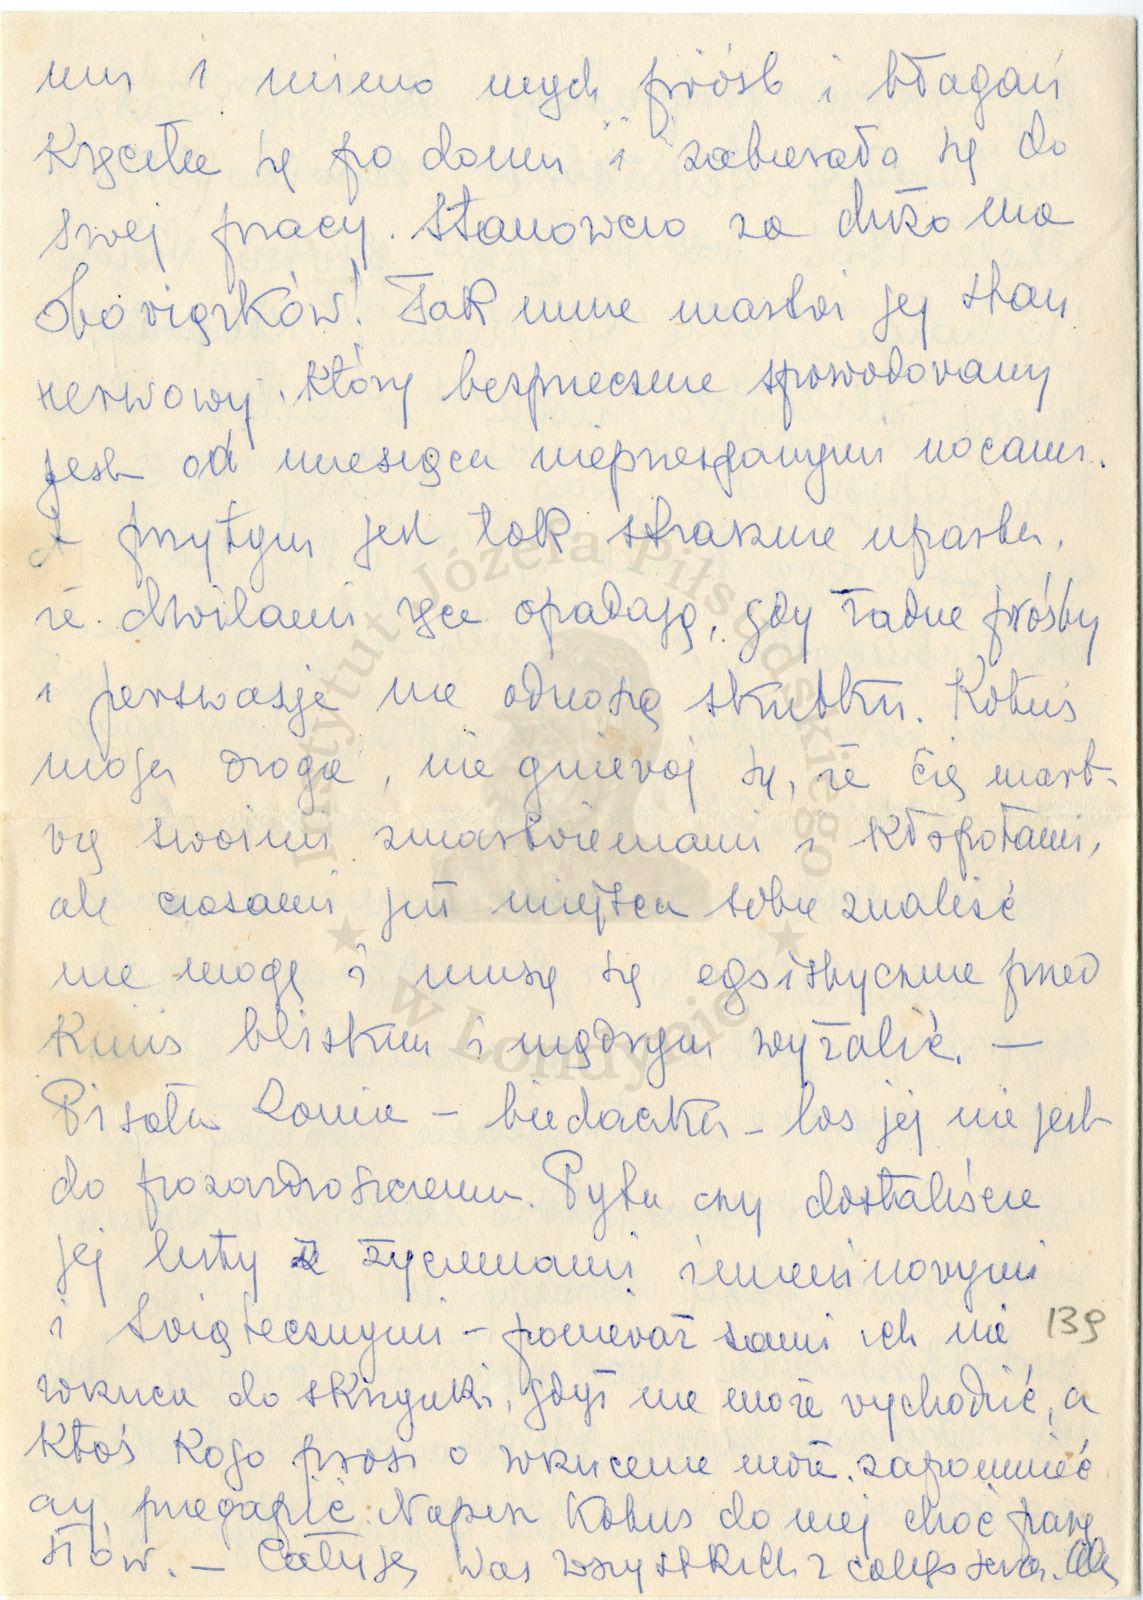 mus i mimo mych próśb i błagań
Kręciła się po domu i zabierała się do
swej pracy. Stanowczo za dużo ma
Obowiązków! Tak mnie martwi jej stan
nerwowy, który bezpiecznie spowodowany
jest od miesiąca nieprzespanymi nocami.
A przytym jest tak strasznie uparta,
że chwilami ręce opadają, gdy żadne prośby
i perswazje nie odnoszą skutku. Kotuś
moja droga, nie gniewaj się, że Cię mart-
wię swoimi zmartwieniami i kłopotami,
ale czasami już miejsca sobie znaleźć
nie mogę i muszę się egoistycznie przed
Kimś bliskim i mądrym wyżalić. —
Pisała - biedaczka - los jej nie jest
do pozazdroszczenia. Pyta czy dostaliście
jej listy z życzeniami imieninowymi
i świątecznymi - ponieważ sama ich nie
wrzuca do skrzynki, gdyż nie może wychodzić, a
Ktoś Kogo prosi o wrzucenie może zapomnieć
czy przegapić. Napisz Kotuś do niej choć parę
słów. — Całuję Was wszystkich z całego serca.
139
Instytut Józefa Piłsudskiego
★ w Londynie ★